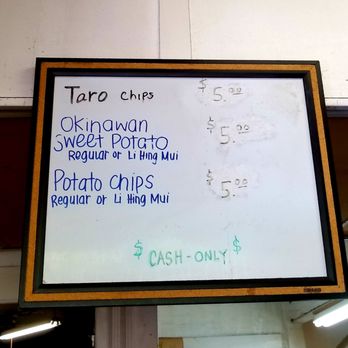 Taro chips $5.00
Okinawan $5.00
Sweet Potato
Regular or Li Hing Mui
Potato Chips $5.00
Regular or Li Hing Mui
$ CASH-ONLY $